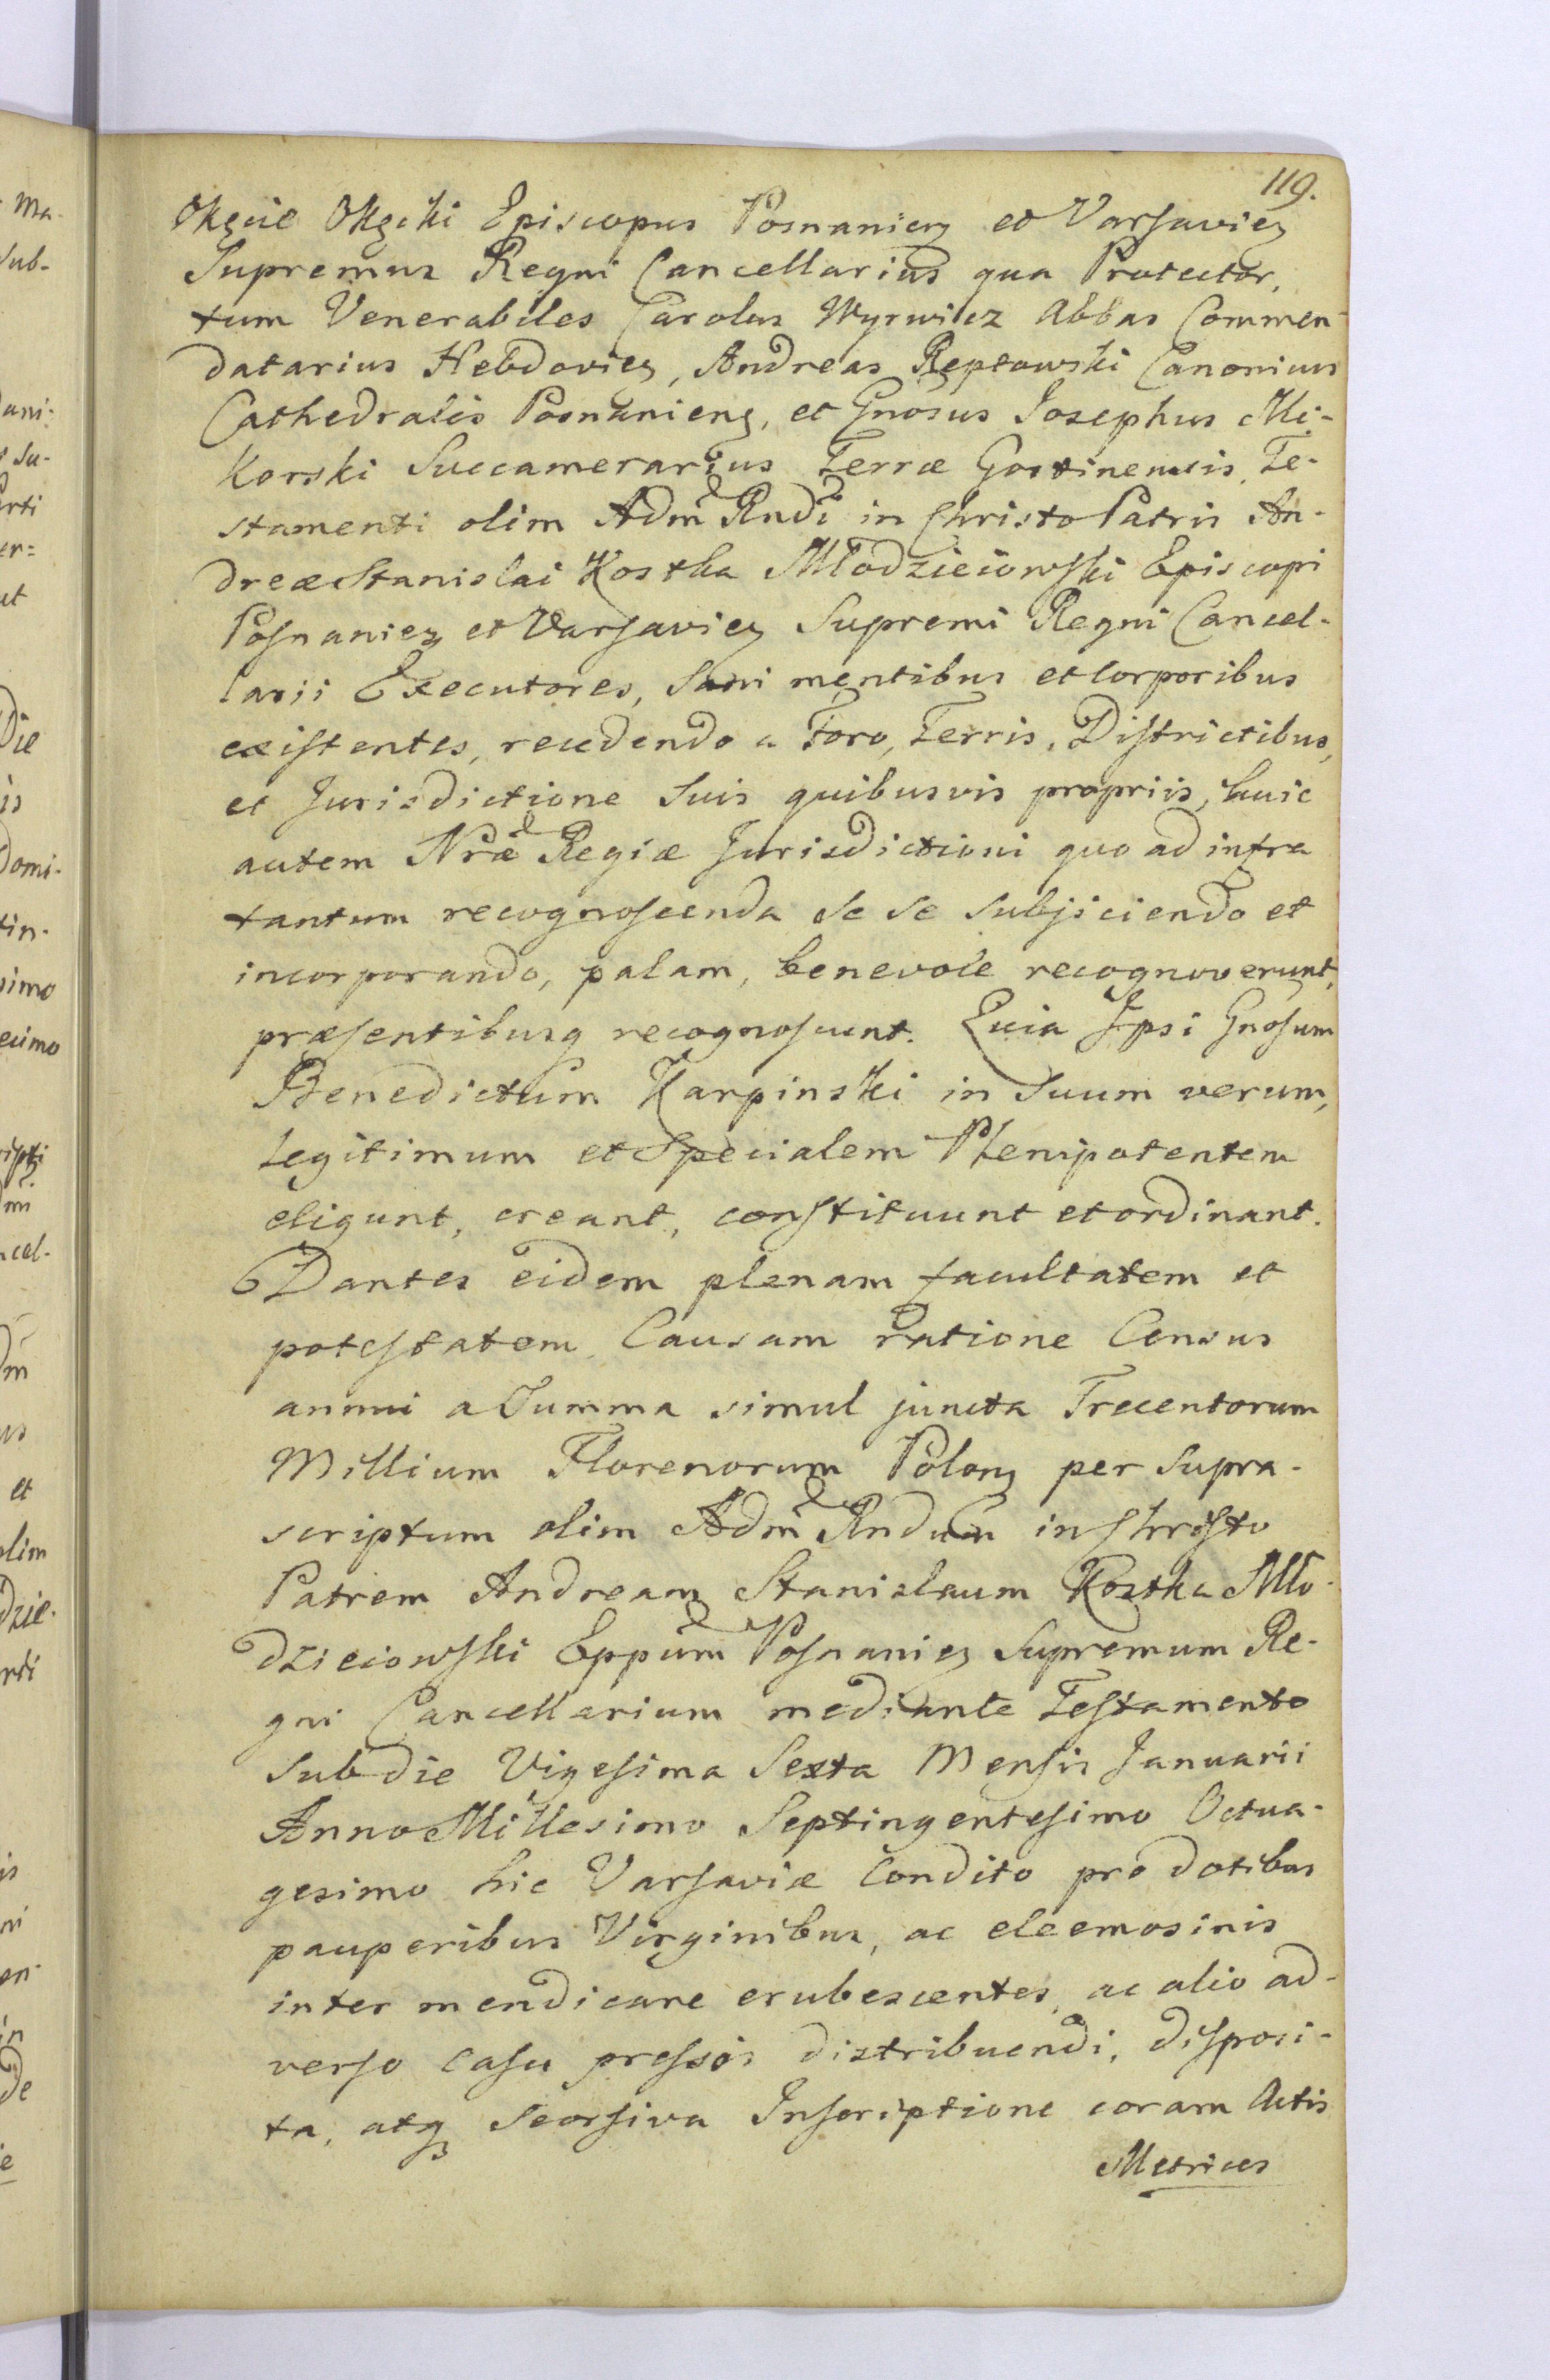 119.
Okęcie Okęcki Episcopus Posnanieņ et Varsavieņ
Supremus Regni Cancellarius qua Protector,
tum Venerabiles Carolus Wyrwicz Abbas Commen-
datarius Hebdovieņ, Andreas Reptowski Canonicus
Cathedralis Posnanieņ, et Gnosus Josephus Mi-
korski Succamerarius Terræ Gostinensis, Te-
stamenti olim Adm Rndi in Christo Patris An-
dreæ Stanislai Kostka Młodzieiowski Episcopi
Posnanieņ et Varsavieņ Supremi Regni Cancel-
larii Executores, Sani mentibus et Corporibus
existentes, recedendo a Foro, Terris, Districtibus,
et Jurisdictione Suis quibusvis propriis, huic
autem Nræ Regiæ Jurisdictioni quo ad infra
tantum recognoscenda Se Se Subjiciendo et
incorporando, palam, benevole recognoverunt,
præsentibusq recognoscunt. Quia Ipsi Gnosum
Benedictum Karpinski in Suum verum,
Legitimum et Specialem Plenipotentem
eligunt, creant, constituunt et ordinant.
Dantes eidem plenam facultatem et
potestatem Causam ratione Census
annui a Summa simul juncta Trecentorum
Millium Florenorum Poloņ per Supra-
scriptum olim Adm Rndum in Christo
Patrem Andream Stanislaum Kostka Mło-
dzieiowski Eppum Posnanieņ Supremum Re-
gni Cancellarium mediante Testamento
Sub die Vigesima Sexta Mensis Januarii
Anno Millesimo Septingentesimo Octua-
gesimo hic Varsaviæ Condito pro dotibus
pauperibus Virginibus, ac eleemosinis
inter mendicare erubescentes, ac alio ad-
verso Casu pressos distribuendi, disposi-
ta, atq Seorsiva Inscriptione coram Actis
Metrices